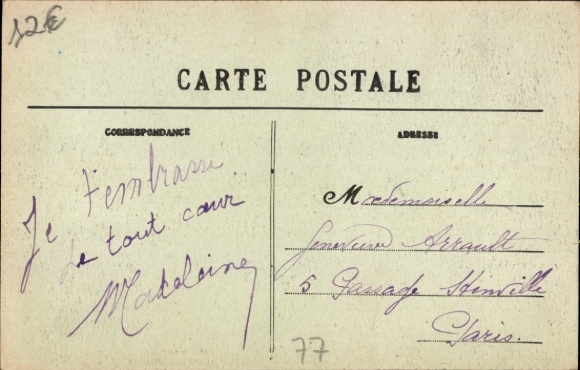 12€
CARTE POSTALE
CORRESPONDANCE
ADRESSE
Je t'embrasse
de tout cœur
Madeleine
Mademoiselle
Geneviève Arrault
5 Passage Stinville
Paris.
77